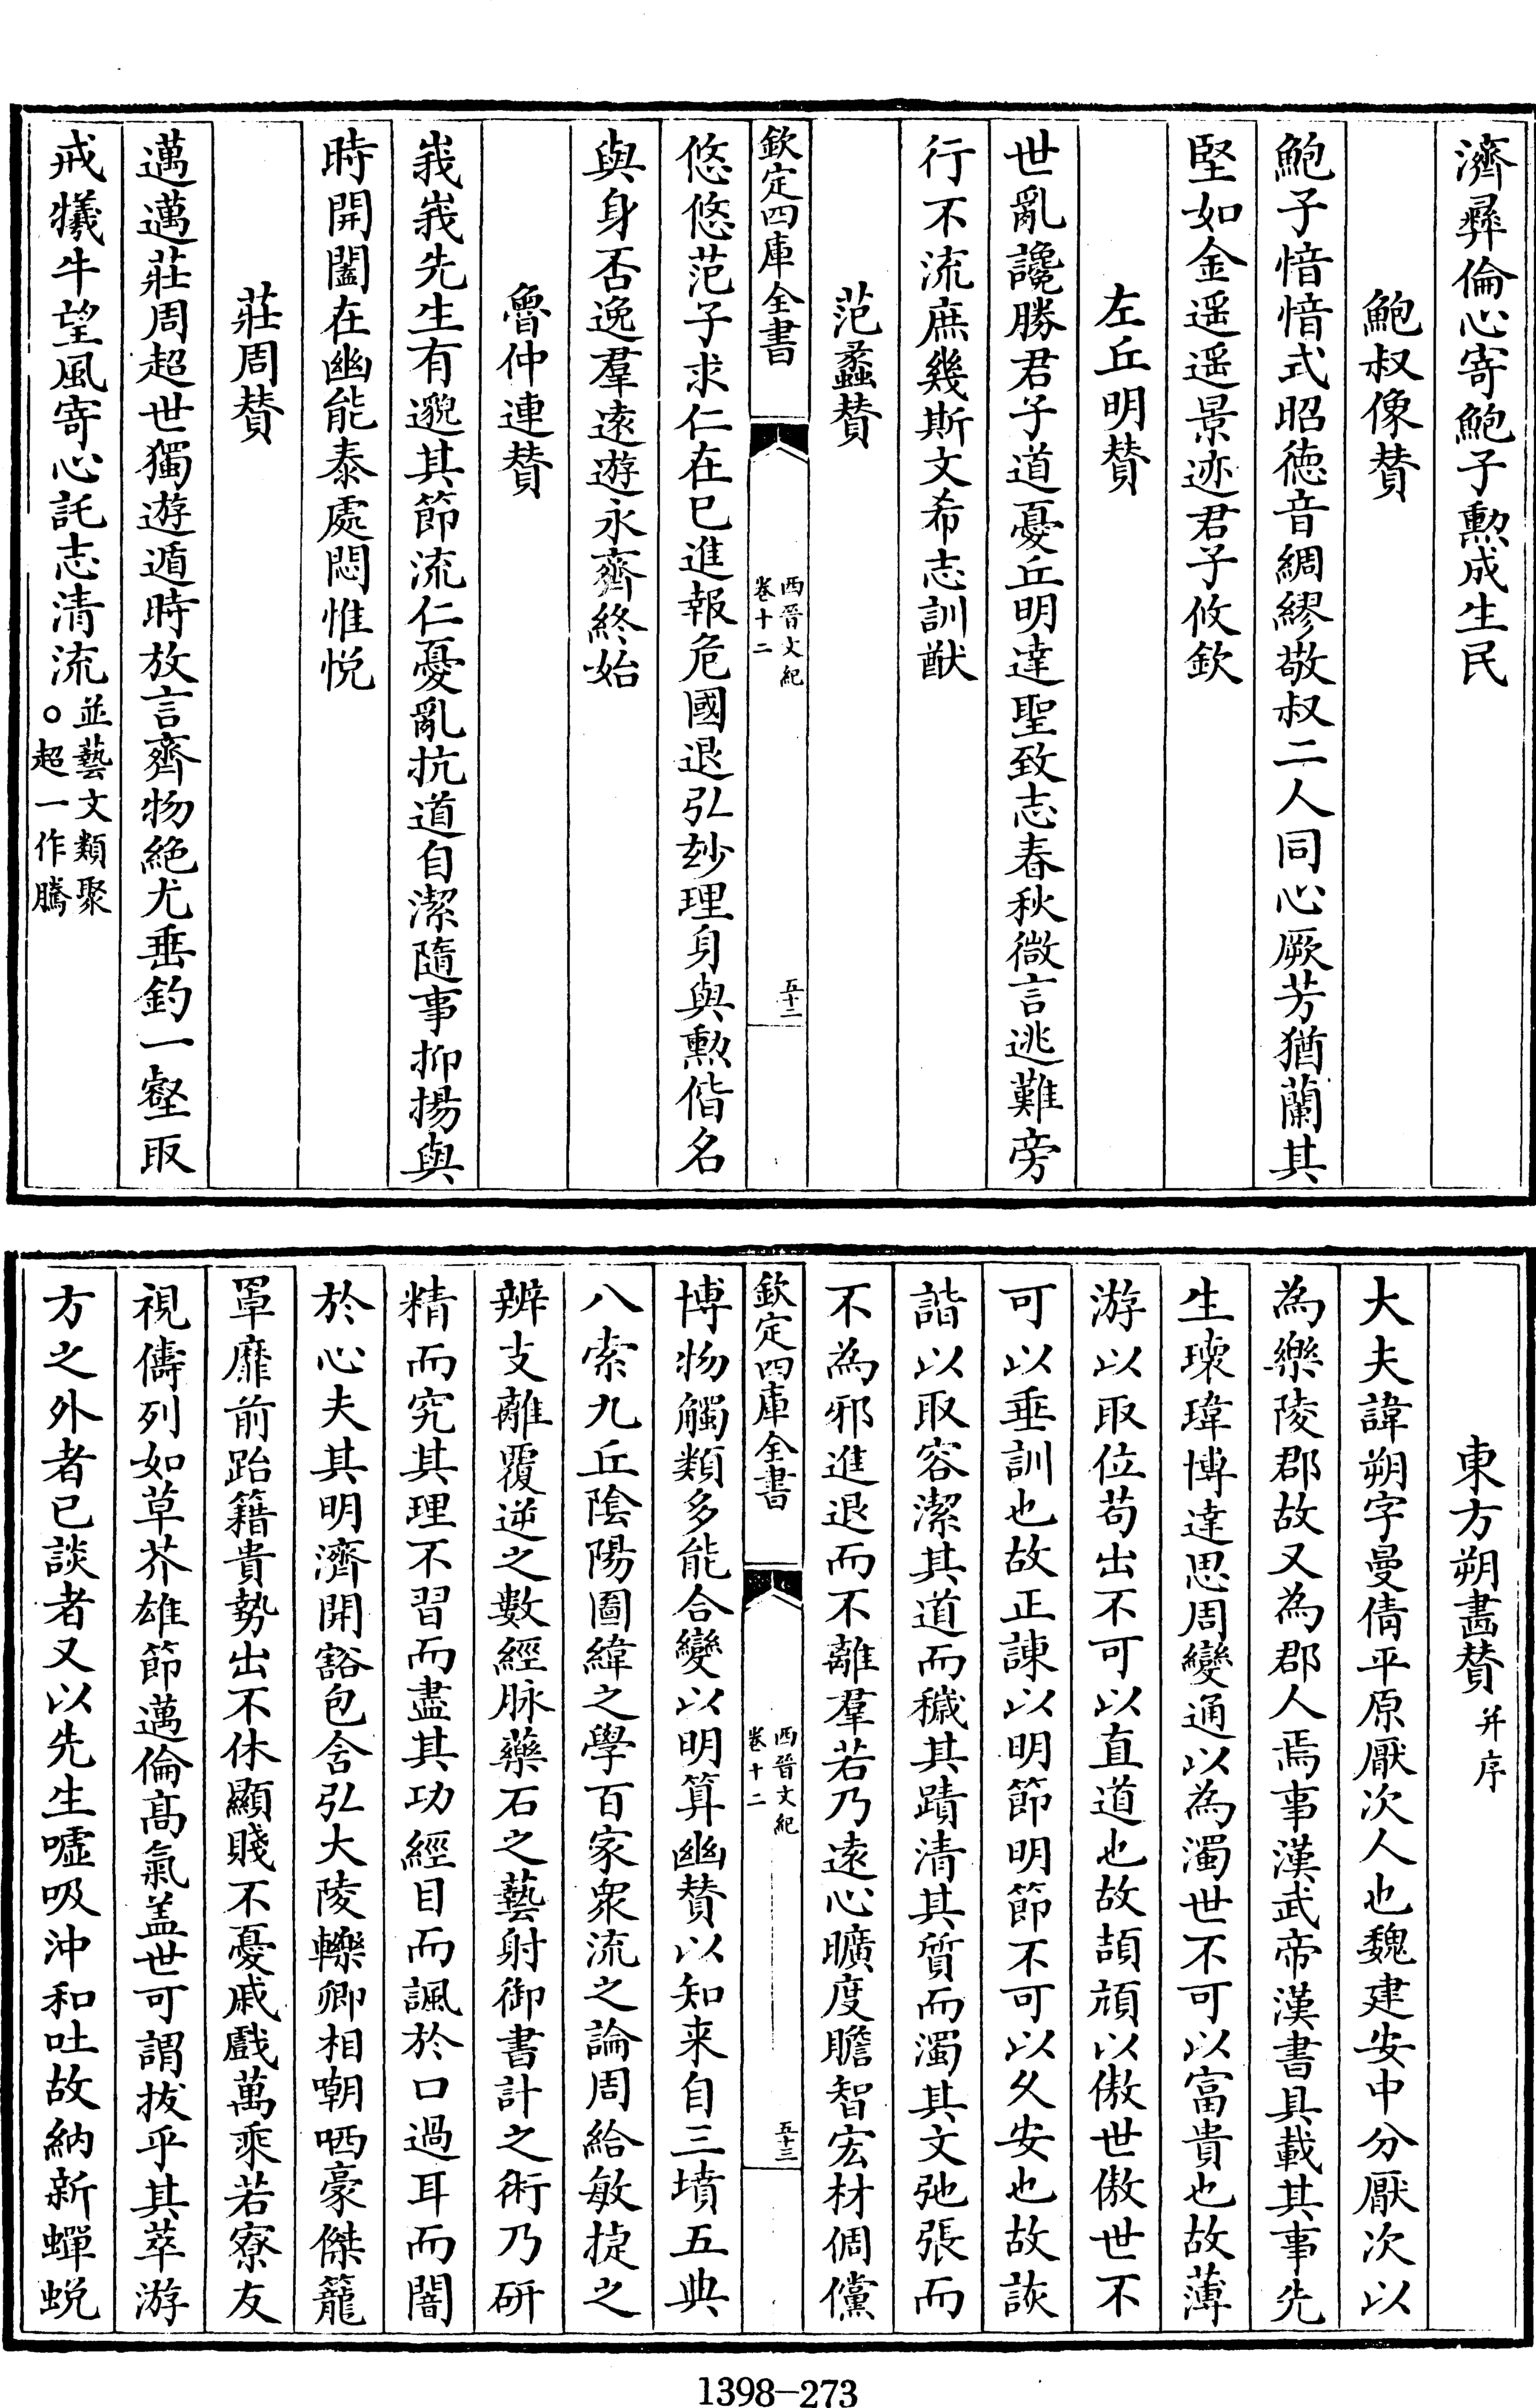 濟彛倫心寄鮑子勲成生民
鮑叔像賛
鮑子愔愔式昭徳音綢繆敬叔二人同心厥芳猶蘭其
堅如金遥遥景迹君子攸欽
左丘明賛
世亂讒勝君子道憂丘明達聖致志春秋微言逃難旁
行不流庶幾斯文希志訓猷
范蠡賛
欽定四庫全書
西晉文紀
卷十二
五十二
悠悠范子求仁在已進報危國退弘妙理身與勲偕名
與身否逸羣遠遊永齊終始
魯仲連賛
峩峩先生有邈其節流仁憂亂抗道自潔隨事抑揚與
時開闔在幽能泰處悶惟悦
莊周賛
邁邁莊周超世獨遊遁時放言齊物絶尤垂釣一壑取
戒犧牛望風寄心託志清流並藝文類聚
○超一作騰
東方朔畵賛并序
大夫諱朔字曼倩平原厭次人也魏建安中分厭次以
為樂陵郡故又為郡人焉事漢武帝漢書具載其事先
生瓌瑋博達思周變通以為濁世不可以富貴也故薄
游以取位苟出不可以直道也故頡頏以傲世傲世不
可以垂訓也故正諫以明節明節不可以久安也故詼
諧以取容潔其道而穢其蹟清其質而濁其文弛張而
不為邪進退而不離羣若乃遠心曠度贍智宏材倜儻
欽定四庫全書
西晉文紀
卷十二
五十三
博物觸類多能合變以明算幽賛以知来自三墳五典
八索九丘陰陽圖緯之學百家衆流之論周給敏捷之
辨支離覆逆之數經脉藥石之藝射御書計之術乃研
精而究其理不習而盡其功經目而諷於口過耳而闇
於心夫其明濟開豁包含弘大陵轢卿相嘲哂豪傑籠
罩靡前跆籍貴勢出不休顯賤不憂戚戲萬乘若寮友
視儔列如草芥雄節邁倫髙氣盖世可謂拔乎其萃游
方之外者已談者又以先生嘘吸沖和吐故納新蟬蜕
1398-273